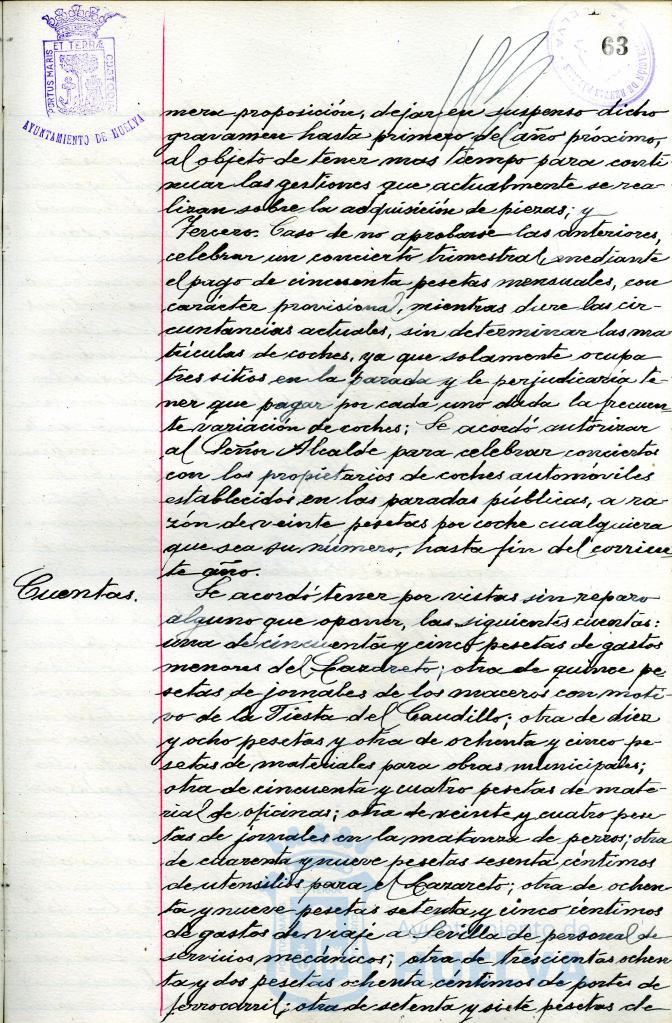 63
PORTUS MARIS ET TERRÆ CUSTODIA
AYUNTAMIENTO DE HUELVA
mera proposición, dejar en suspenso dicho
gravamen hasta primero del año próximo,
al objeto de tener mas tiempo para conti
nuar las gestiones que actualmente se rea-
lizan sobre la adquisición de piezas; y
Tercero. Caso de no aprobarse las anteriores,
celebrar un concierto trimestral, mediante
el pago de cincuenta pesetas mensuales, con
carácter provisional, mientras dure las cir-
cuntancias actuales, sin determinar las ma
trículas de coches, ya que solamente ocupa
tres sitios en la parada y le perjudicaría te-
ner que pagar por cada uno dada la frecuen-
te variación de coches; Se acordó autorizar
al Señor Alcalde para celebrar conciertos
con los propietarios de coches automóviles
establecidos en las paradas públicas, a ra-
zón de veinte pesetas por coche cualquiera
que sea su número, hasta fin del corrien-
te año.
Cuentas.
Se acordó tener por vistas sin reparo
alguno que oponer, las siguientes cuentas:
una de cincuenta y cinco pesetas de gastos
menores del Lazareto; otra de quince pe-
setas de jornales de los maceros con moti-
vo de la Fiesta del Caudillo; otra de diez
y ocho pesetas y otra de ochenta y cinco pe-
setas de materiales para obras municipales;
otra de cincuenta y cuatro pesetas de mate-
rial de oficinas; otra de veinte y cuatro pese
tas de jornales en la matanza de perros; otra
de cuarenta y nueve pesetas sesenta céntimos
de utensilios para el Lazareto; otra de ochen-
ta y nueve pesetas setenta y cinco céntimos
de gastos de viaje a Sevilla de personal de
servicios mecánicos; otra de trescientas ochen
ta y dos pesetas ochenta céntimos de portes de
ferrocarril; otra de setenta y siete pesetas de
Ayuntamiento de
HUELVA